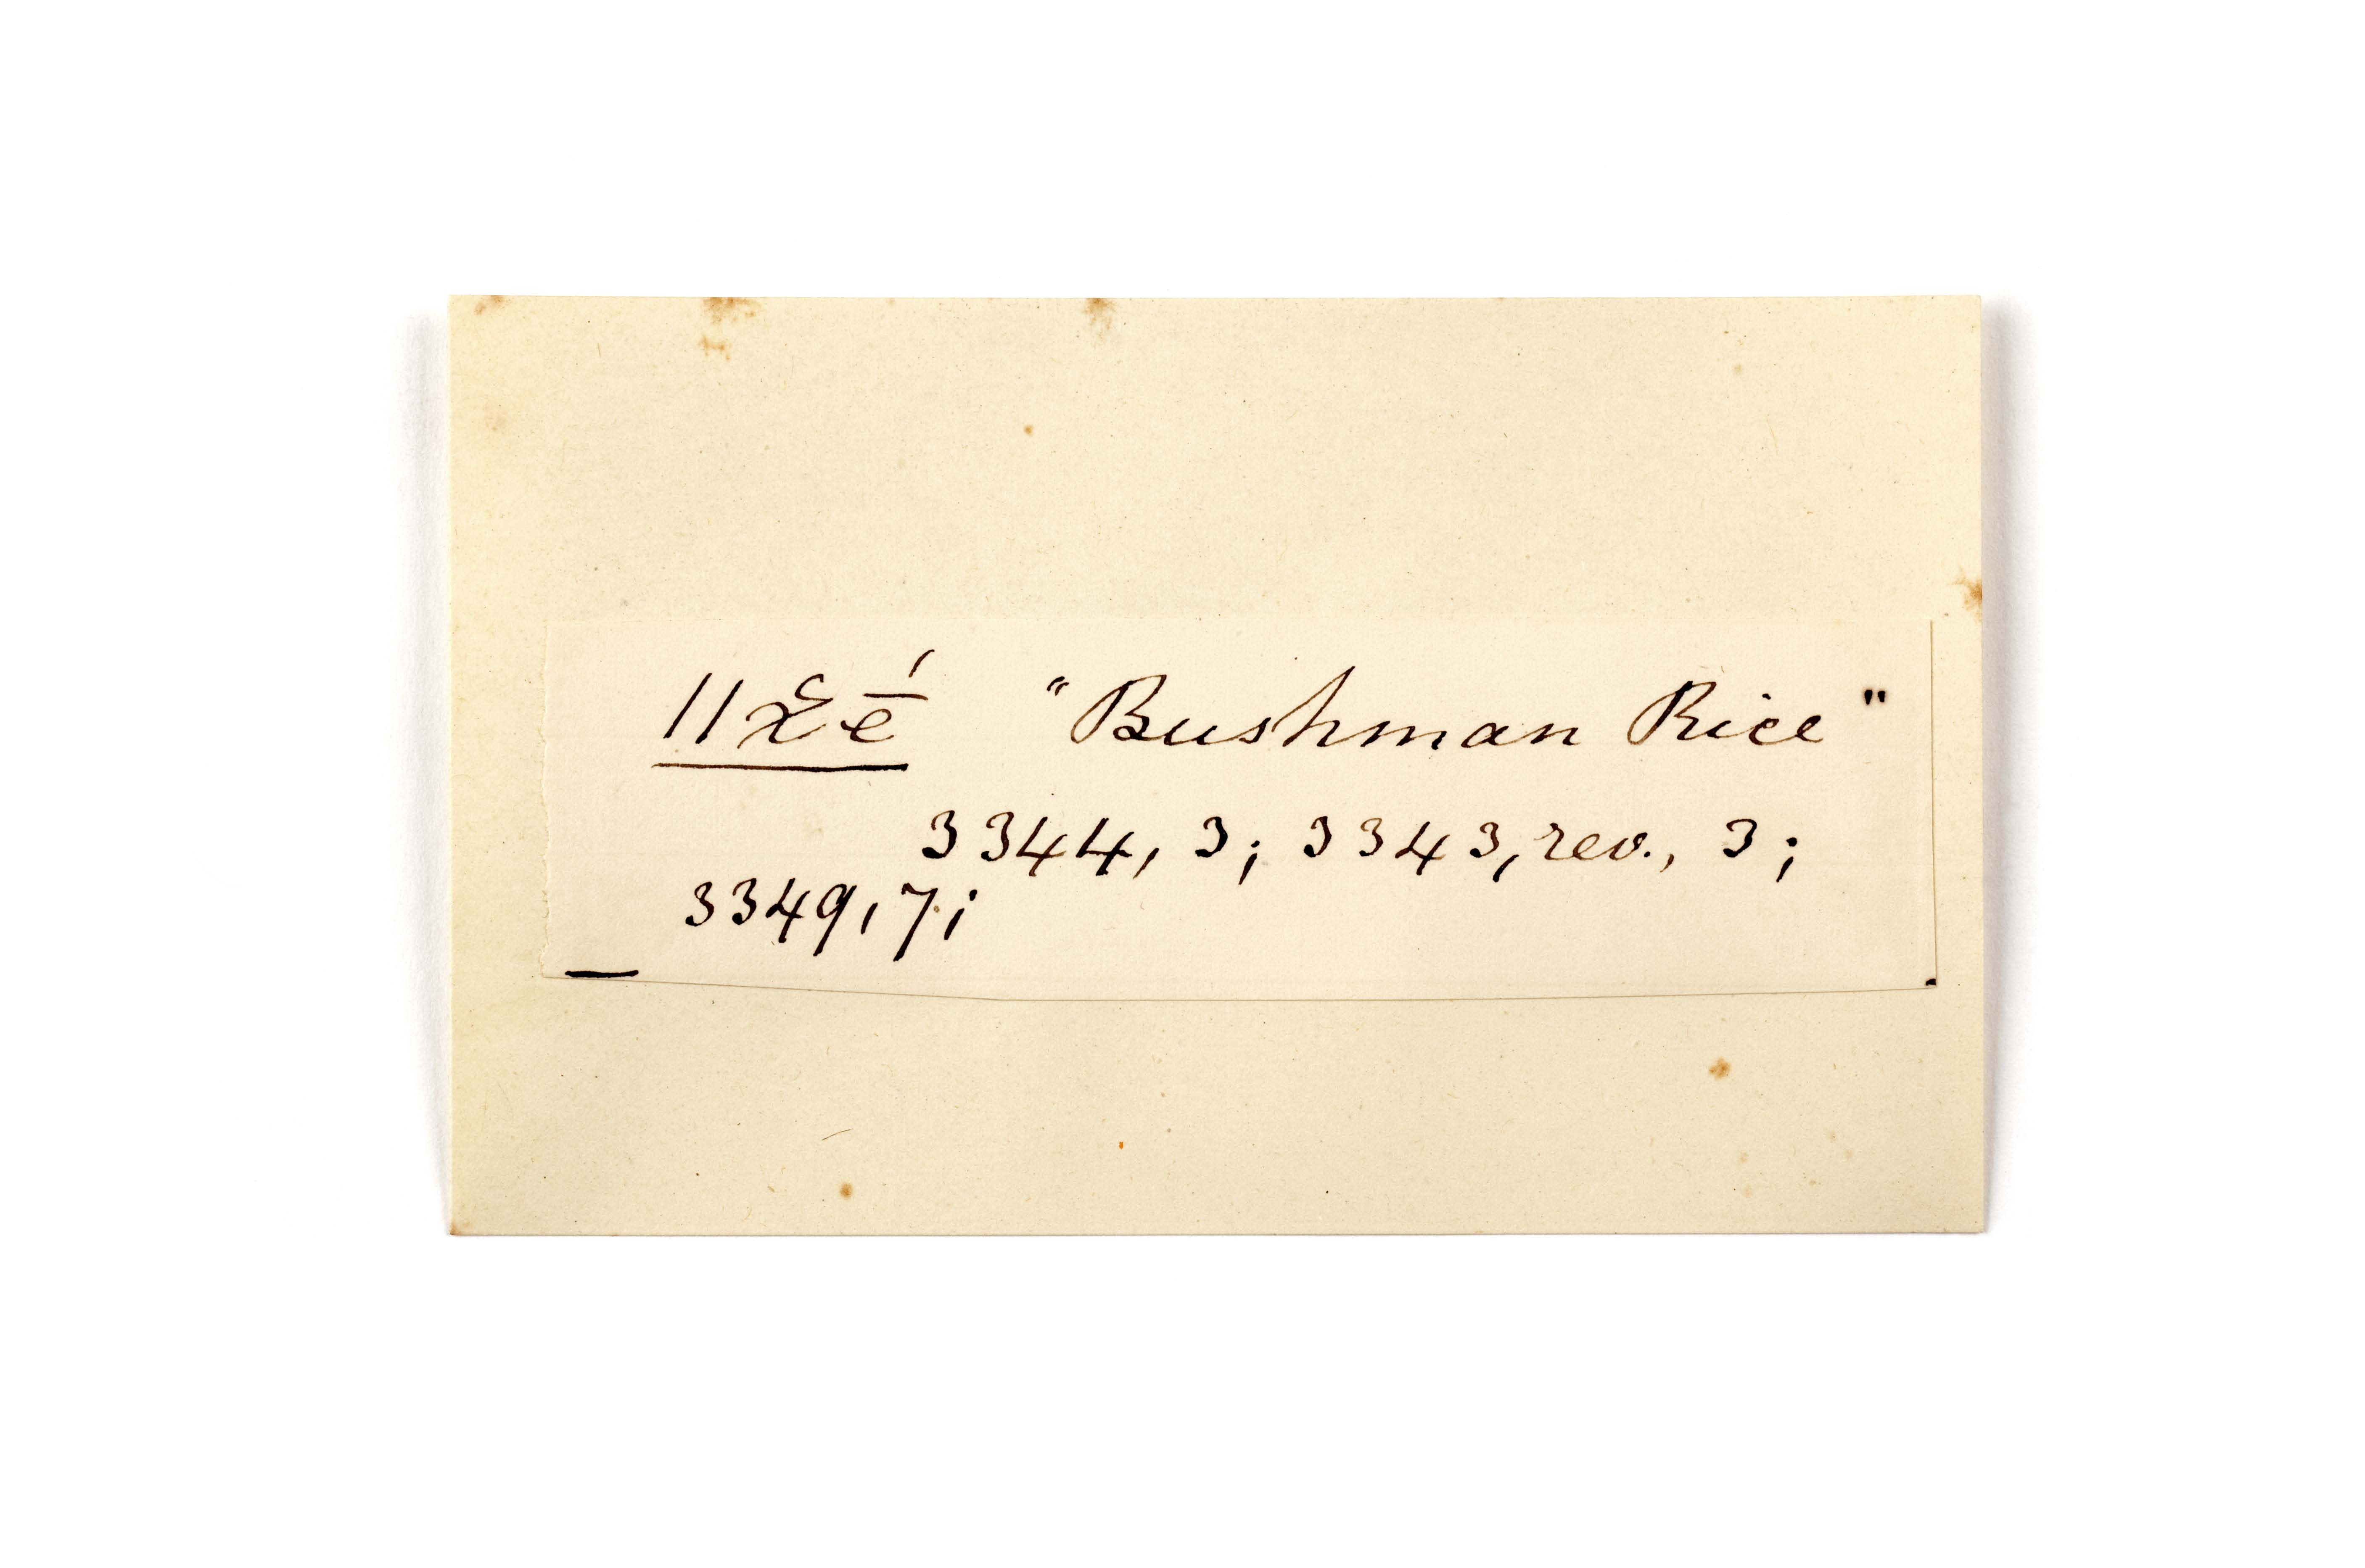 ǁχé̄ "Bushman Rice"
3344, 3; 3343, rev., 3;
3349, 7;